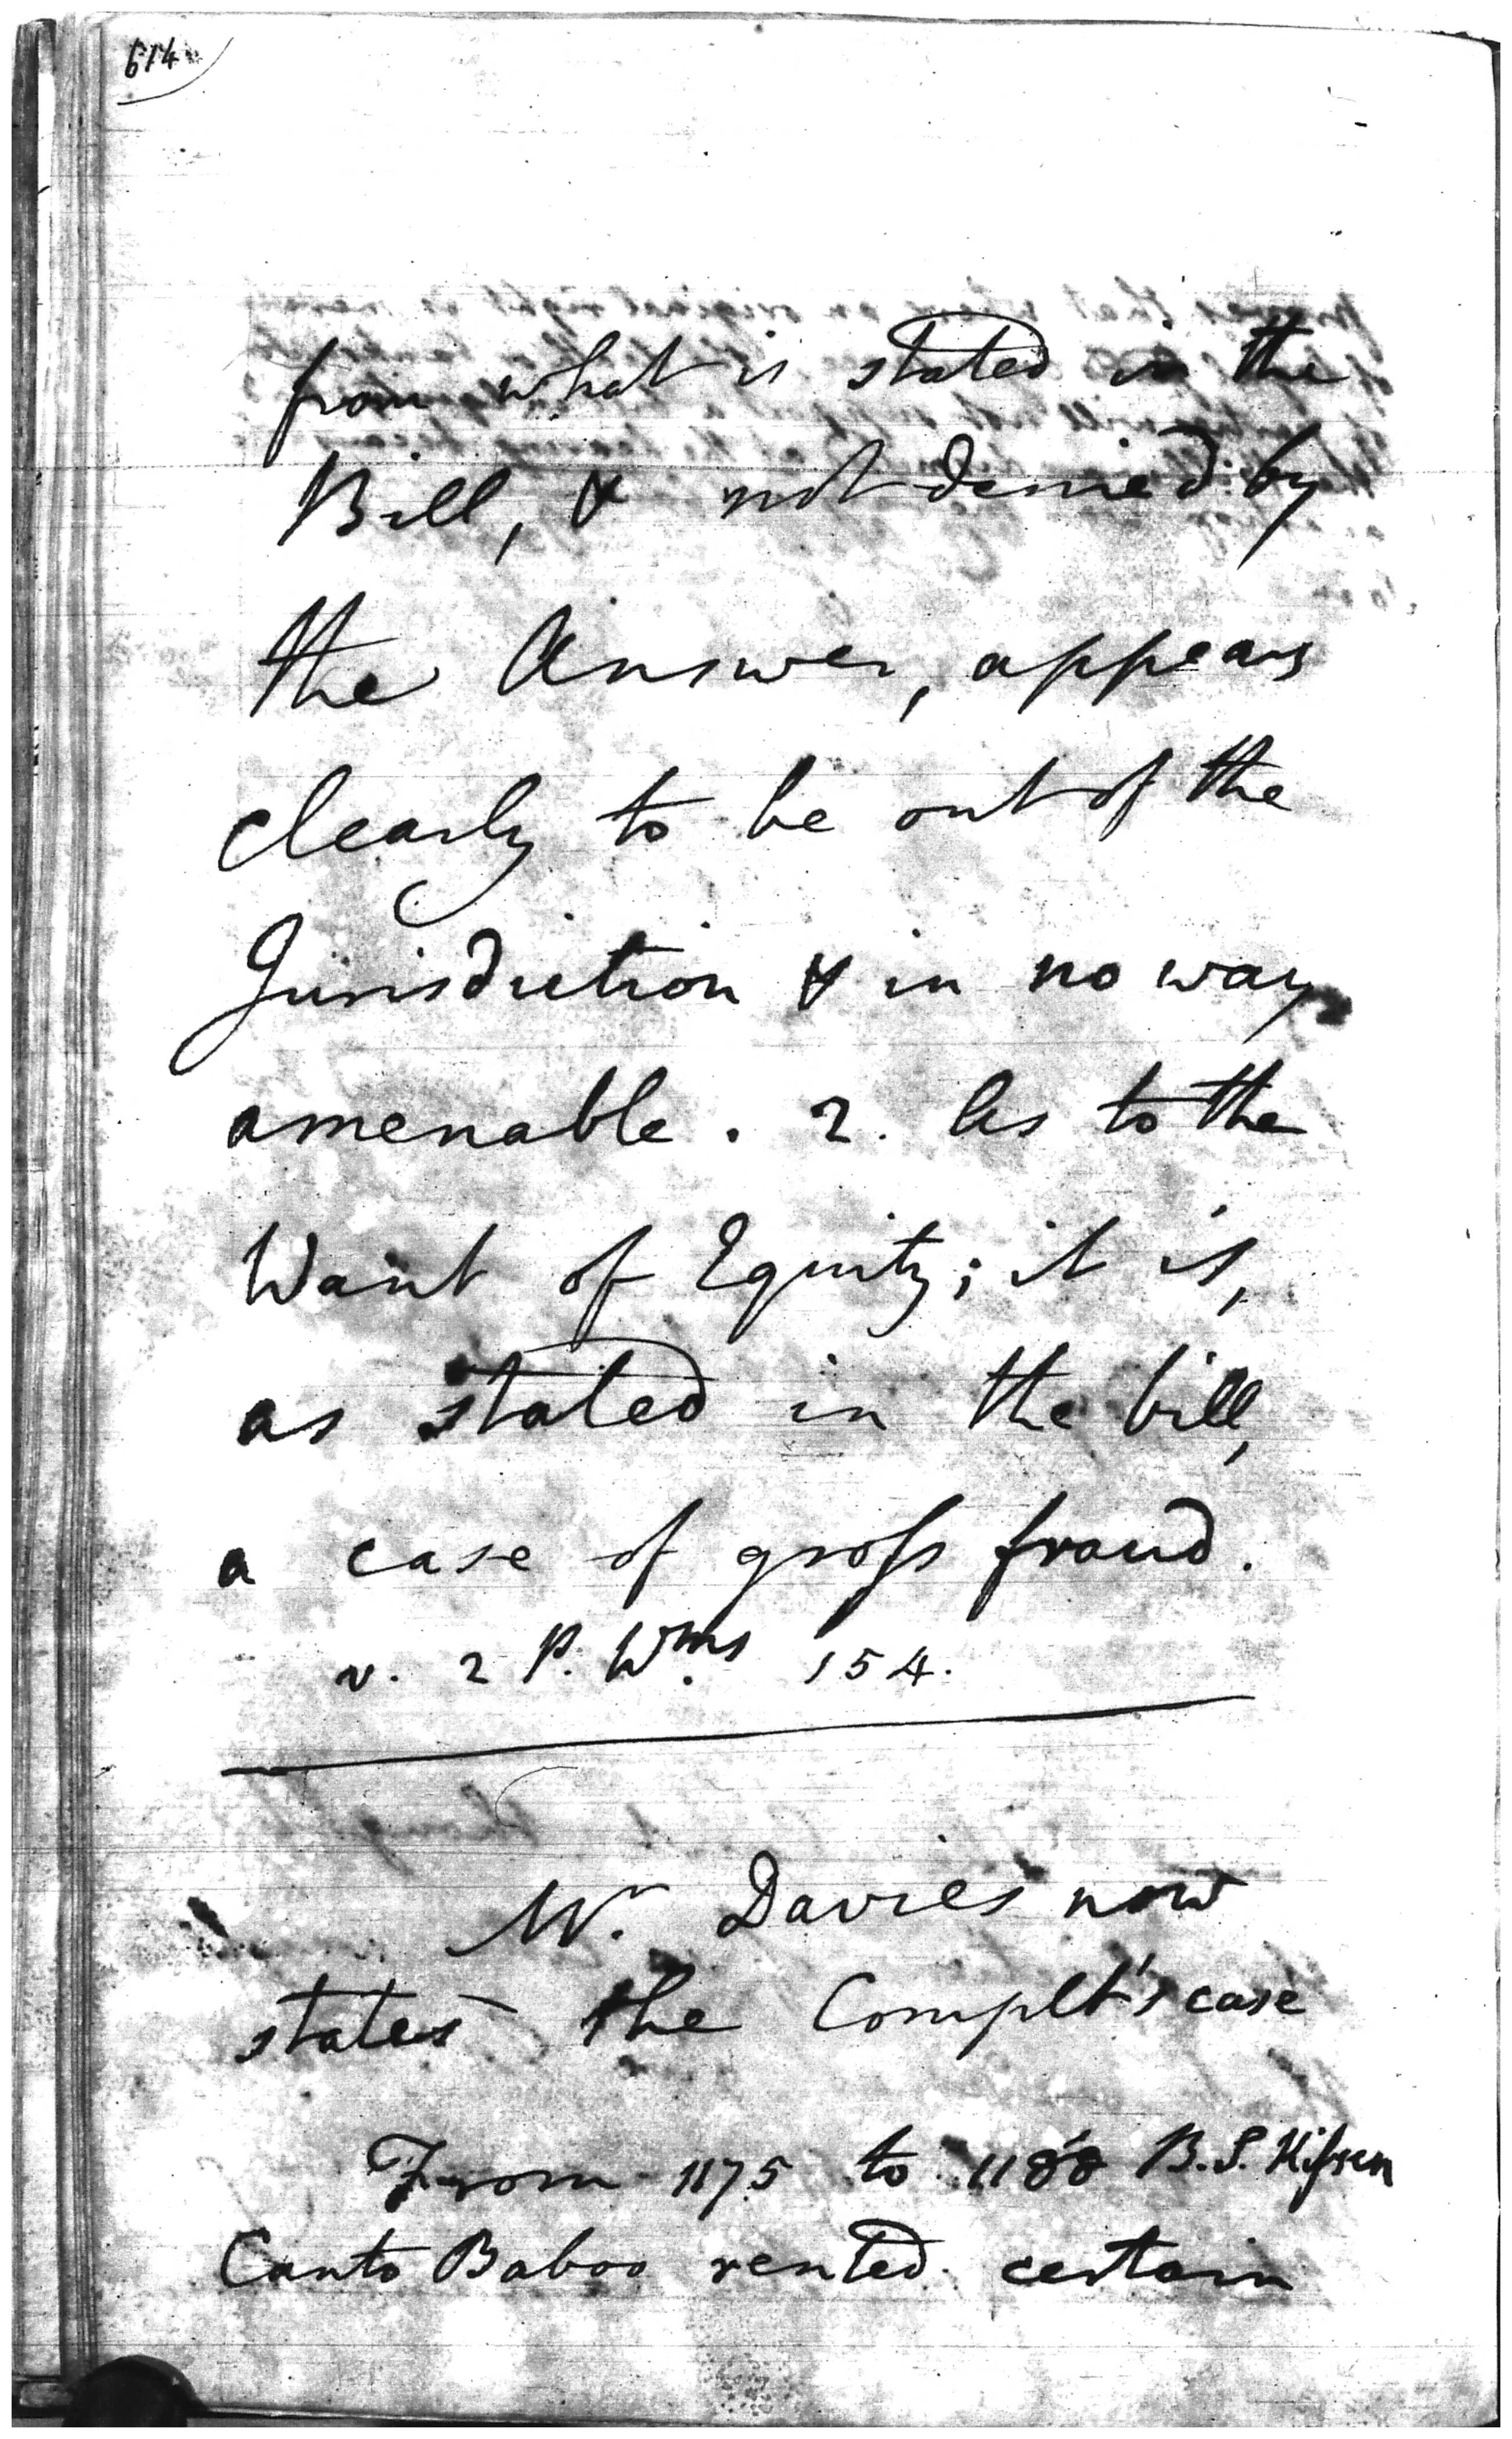 614
from what is stated in the
Bill, & not denied by
the Answer, appears
clearly to be out of the
Jurisdiction & in no way
amenable. 2. As to the
Want of Equity; it is,
as stated in the bill,
a case of groſs fraud.
v. 2 P. Wms 154.
Mr. Davies now
states the Complt's case
From 1175 to 1188 B.S. Kiſsen
Canto Baboo rented certain